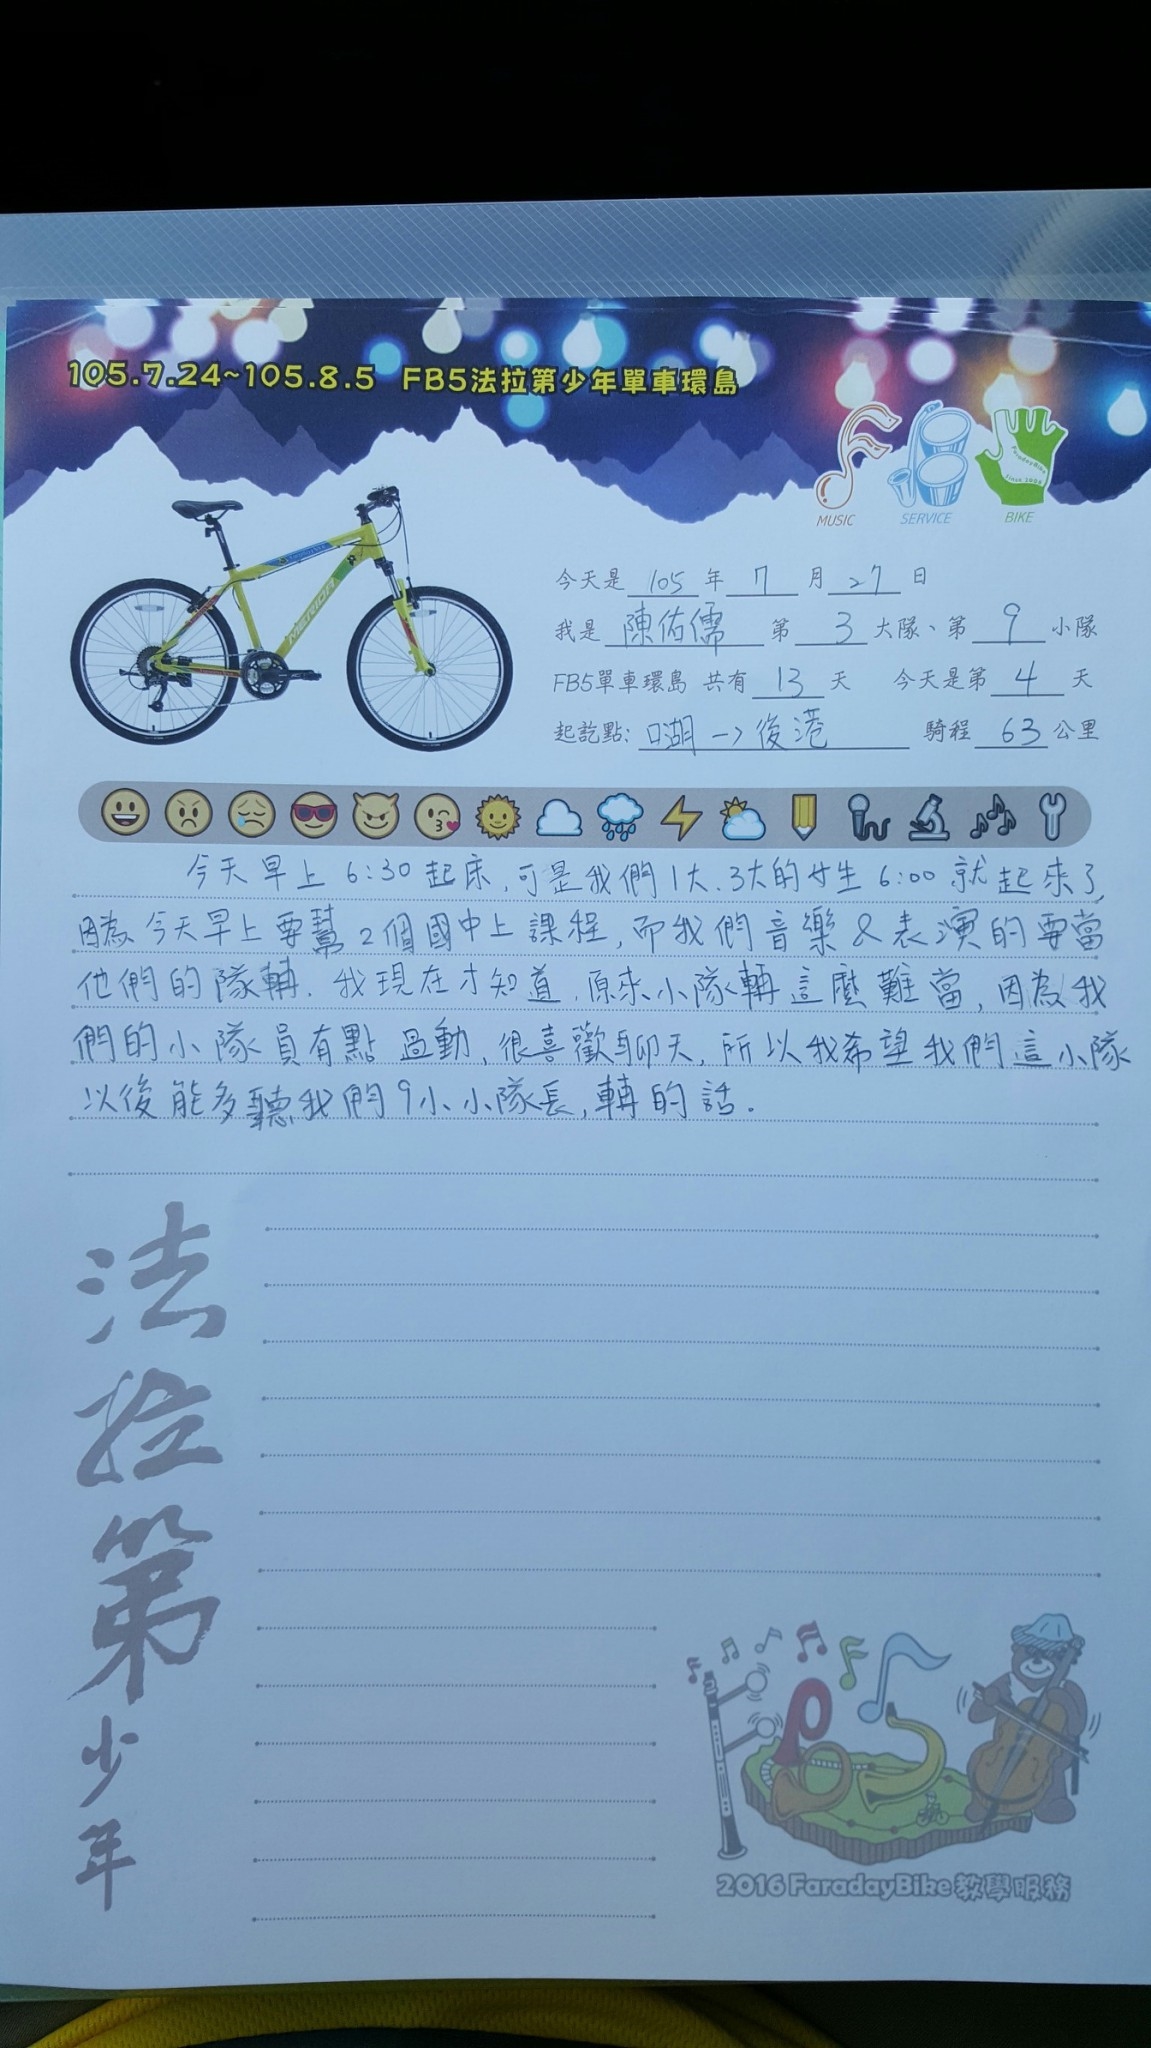 105.7.24~105.8.5 FB5法拉第少年單車環島
MUSIC SERVICE BIKE
FaradayBike
Since 2008
MERIDA
今天是 105 年 7 月 27 日
我是 陳佑儒 第 3 大隊、第 9 小隊
FB5單車環島 共有 13 天 今天是第 4 天
起訖點: 口湖 -> 後港 騎程 63 公里
今天早上6:30起床,可是我們1大.3大的女生6:00就起來了,
因為今天早上要幫2個國中上課程,而我們音樂&表演的要當
他們的隊輔.我現在才知道,原來小隊輔這麼難當,因為我
們的小隊員有點過動,很喜歡聊天,所以我希望我們這小隊
以後能多聽我們9小小隊長,輔的話.
法拉第少年
2016 FaradayBike 教學服務